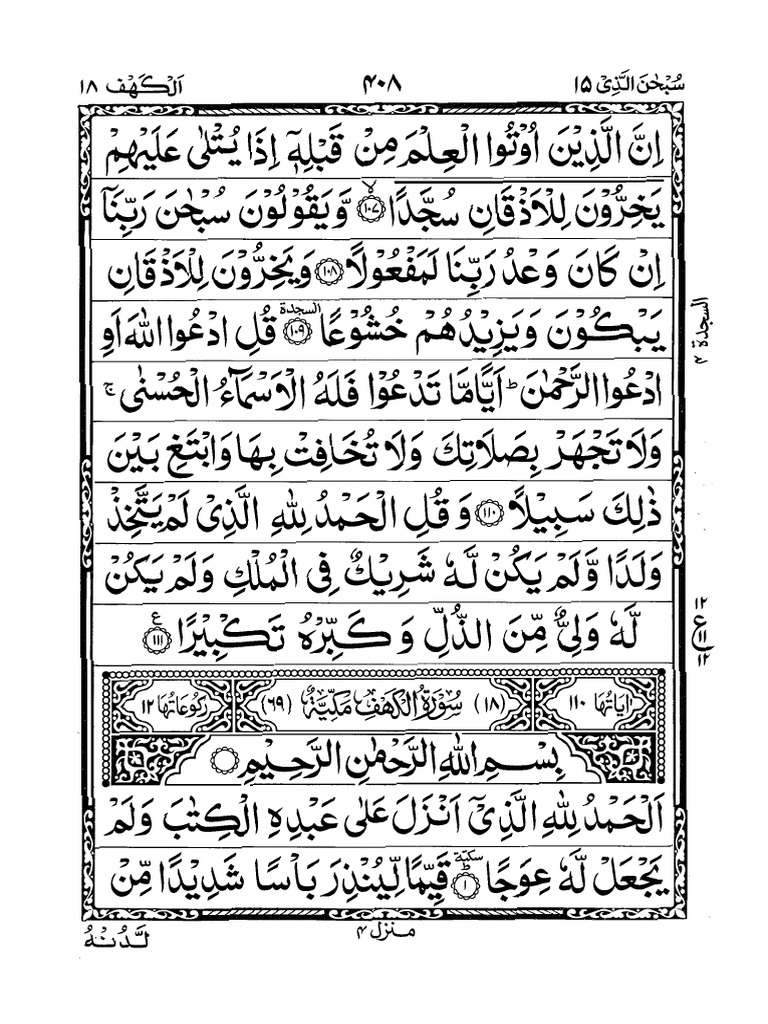 سُبْحٰنَ الَّذِیْ ۱۵
۴۰۸
اَلْكَهْف ۱۸
اِنَّ الَّذِیْنَ اُوْتُوا الْعِلْمَ مِنْ قَبْلِهٖۤ اِذَا یُتْلٰى عَلَیْهِمْ
یَخِرُّوْنَ لِلْاَذْقَانِ سُجَّدًاۙ‏ ۱۰۷ وَّیَقُوْلُوْنَ سُبْحٰنَ رَبِّنَاۤ
اِنْ كَانَ وَعْدُ رَبِّنَا لَمَفْعُوْلًا ۱۰۸ وَیَخِرُّوْنَ لِلْاَذْقَانِ
یَبْكُوْنَ وَیَزِیْدُهُمْ خُشُوْعًا السجدة ۱۰۹ قُلِ ادْعُوا اللّٰهَ اَوِ
السجدة ۴
ادْعُوا الرَّحْمٰنَؕ اَیًّا مَّا تَدْعُوْا فَلَهُ الْاَسْمَآءُ الْحُسْنٰىۚ
وَلَا تَجْهَرْ بِصَلَاتِكَ وَلَا تُخَافِتْ بِهَا وَابْتَغِ بَیْنَ
ذٰلِكَ سَبِیْلًا ۱۱۰ وَقُلِ الْحَمْدُ لِلّٰهِ الَّذِیْ لَمْ یَتَّخِذْ
وَلَدًا وَّلَمْ یَكُنْ لَّهٗ شَرِیْكٌ فِی الْمُلْكِ وَلَمْ یَكُنْ
لَّهٗ وَلِیٌّ مِّنَ الذُّلِّ وَكَبِّرْهُ تَكْبِیْرًا ع ۱۱۱
۱۲
ع ۱۱
۱۲
اٰیَاتُهَا ۱۱۰
(۱۸) سُوْرَةُ الْكَهْفِ مَكِّیَّةٌ (۶۹)
رُكُوْعَاتُهَا ۱۲
بِسْمِ اللّٰهِ الرَّحْمٰنِ الرَّحِیْمِ
اَلْحَمْدُ لِلّٰهِ الَّذِیْۤ اَنْزَلَ عَلٰى عَبْدِهِ الْكِتٰبَ وَلَمْ
یَجْعَلْ لَّهٗ عِوَجًاؕ سكتة ۱ قَیِّمًا لِّیُنْذِرَ بَاْسًا شَدِیْدًا مِّنْ
منزل ۴
لَّدُنْهُ